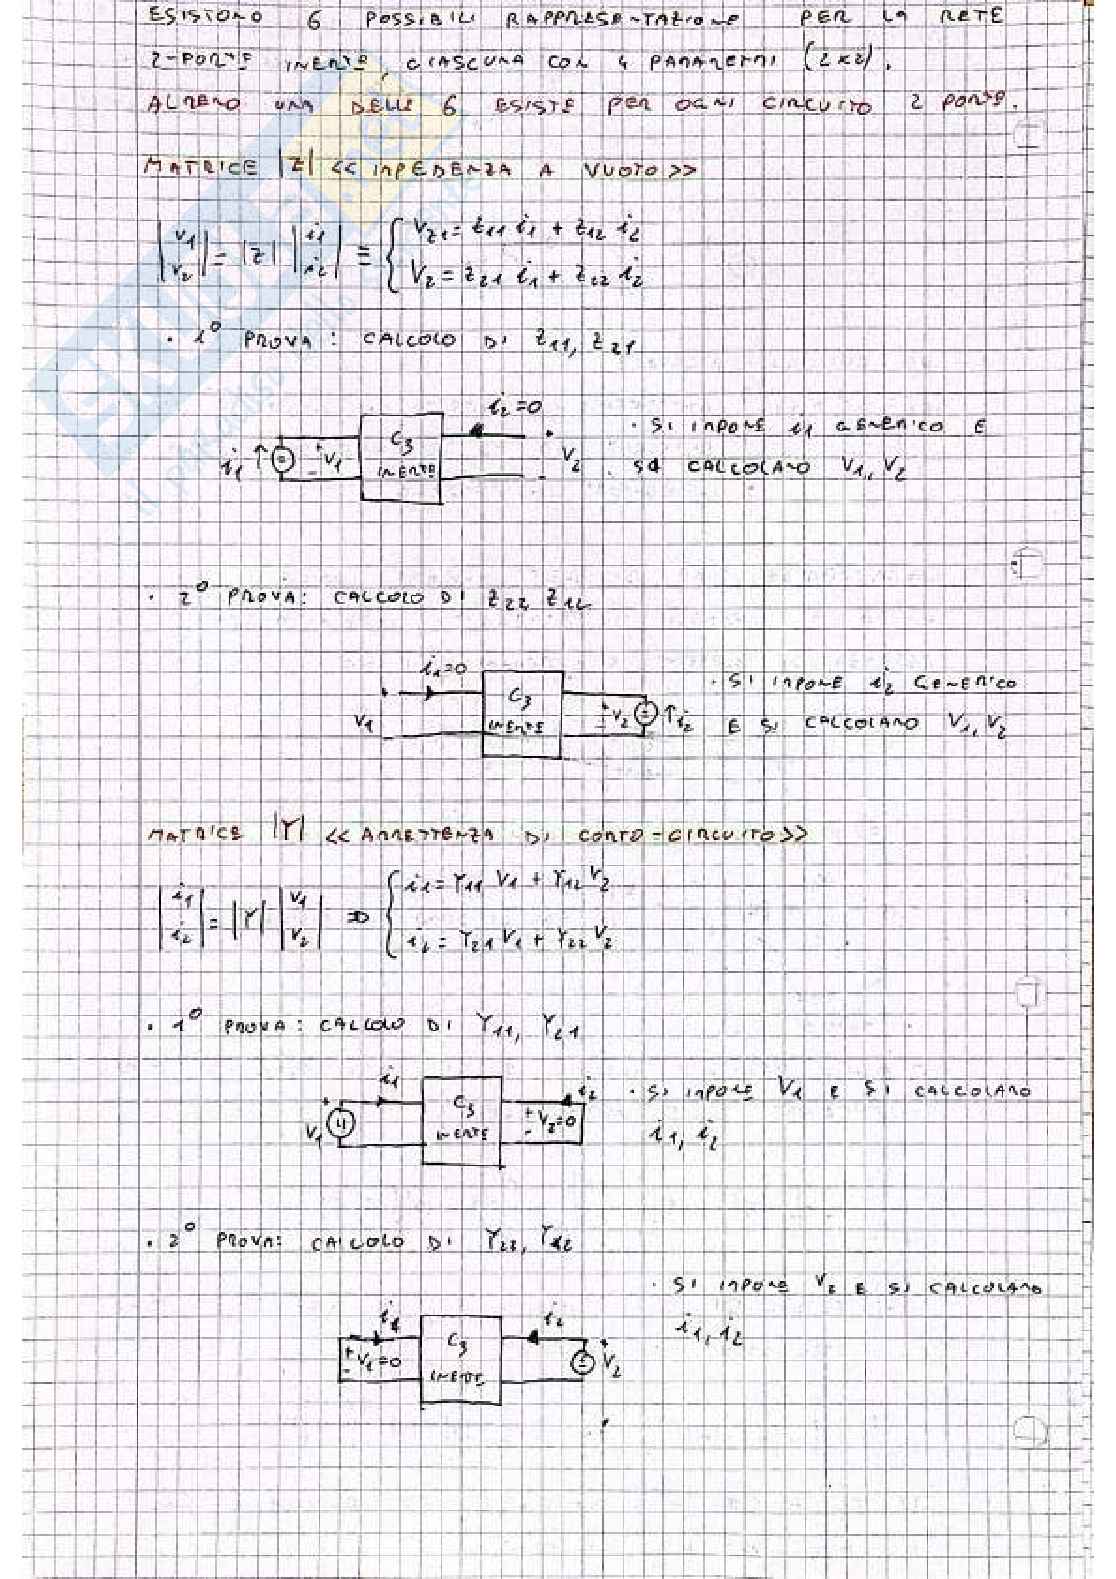 ESISTONO 6 POSSIBILI RAPPRESENTAZIONE PER LA RETE
2-PORTE INERTE, CIASCUNA CON 4 PARAMETRI (2x2).
ALMENO UNA DELLE 6 ESISTE PER OGNI CIRCUITO 2 PORTE.
MATRICE |Z| << IMPEDENZA A VUOTO >>
|V1 V2| = |Z| |i1 i2| ≡ { VZ1 = Z11 i1 + Z12 i2
V2 = Z21 i1 + Z22 i2
· 1° PROVA: CALCOLO DI Z11, Z21
i2=0
· SI IMPONE i1 GENERICO E
i1 ↑ + V1 - C3 INERTE V2
· SI CALCOLANO V1, V2
· 2° PROVA: CALCOLO DI Z22 Z12
i1=0
· SI IMPONE i2 GENERICO
V1 C3 INERTE + V2 - ↑ i2
E SI CALCOLANO V1, V2
MATRICE |Y| << AMMETTENZA DI CORTO-CIRCUITO >>
|i1 i2| = |Y| |V1 V2| ⇒ { i1 = Y11 V1 + Y12 V2
i2 = Y21 V1 + Y22 V2
· 1° PROVA: CALCOLO DI Y11, Y21
i1 i2
· SI IMPONE V1 E SI CALCOLANO
V1 C3 INERTE + V2=0 -
i1, i2
· 2° PROVA: CALCOLO DI Y22, Y12
· SI IMPONE V2 E SI CALCOLANO
i1, i2
i1 i2
+ V1=0 - C3 INERTE + V2
SKUOLA.net